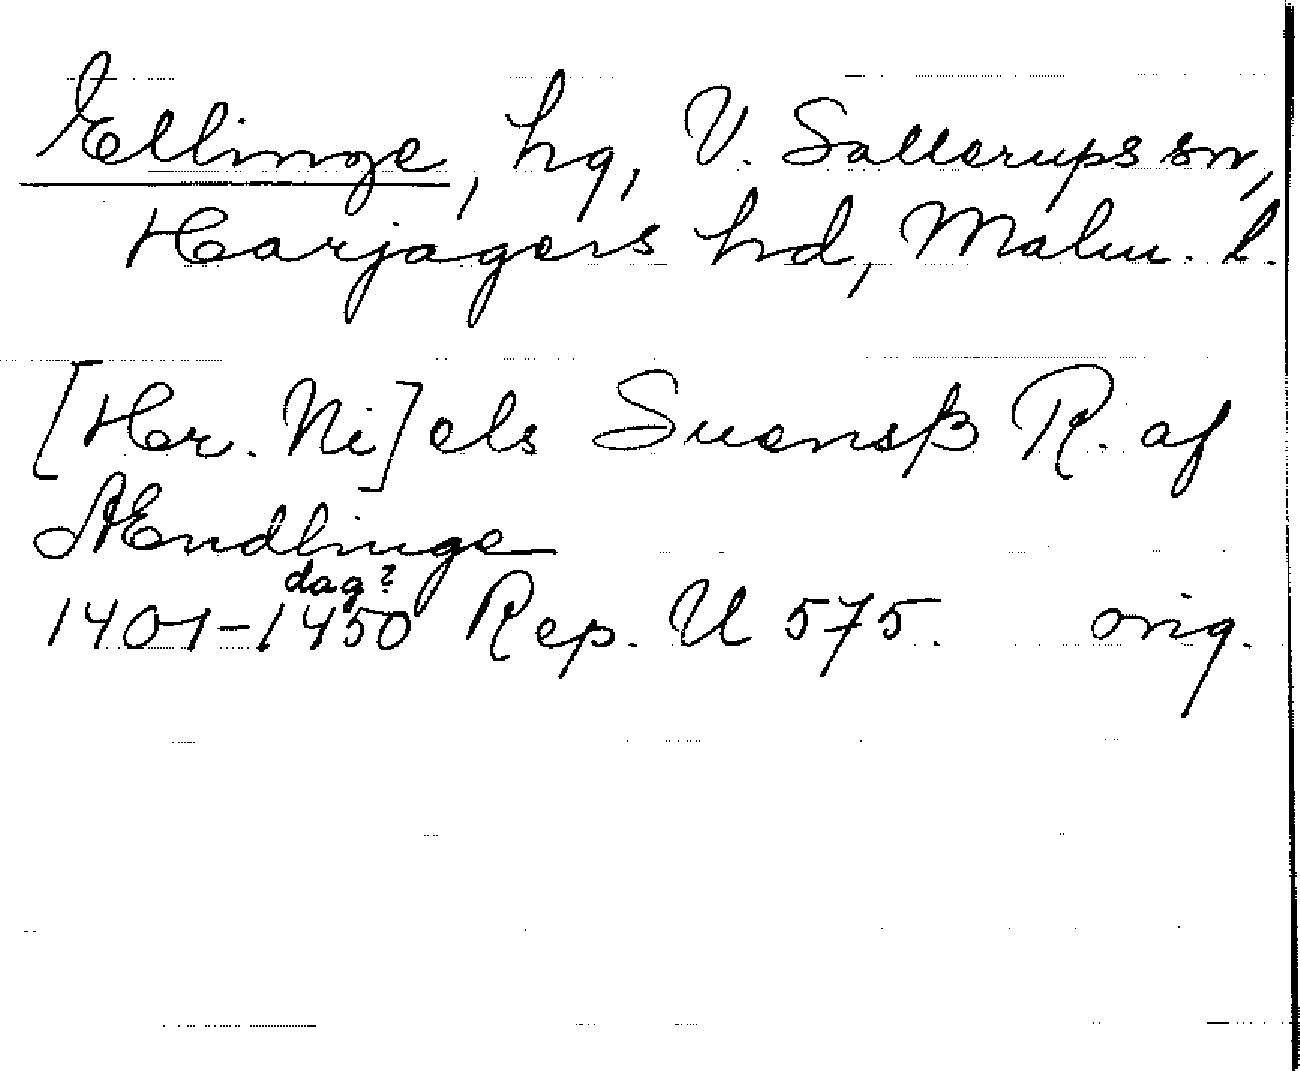 Ellinge, hg, V. Sallerups sn,
Harjagers hd, Malm. l.
[Her. Ni]els Suensß R. af
Ændlinge
dag?
1401-1450 Rep. U 575. orig.